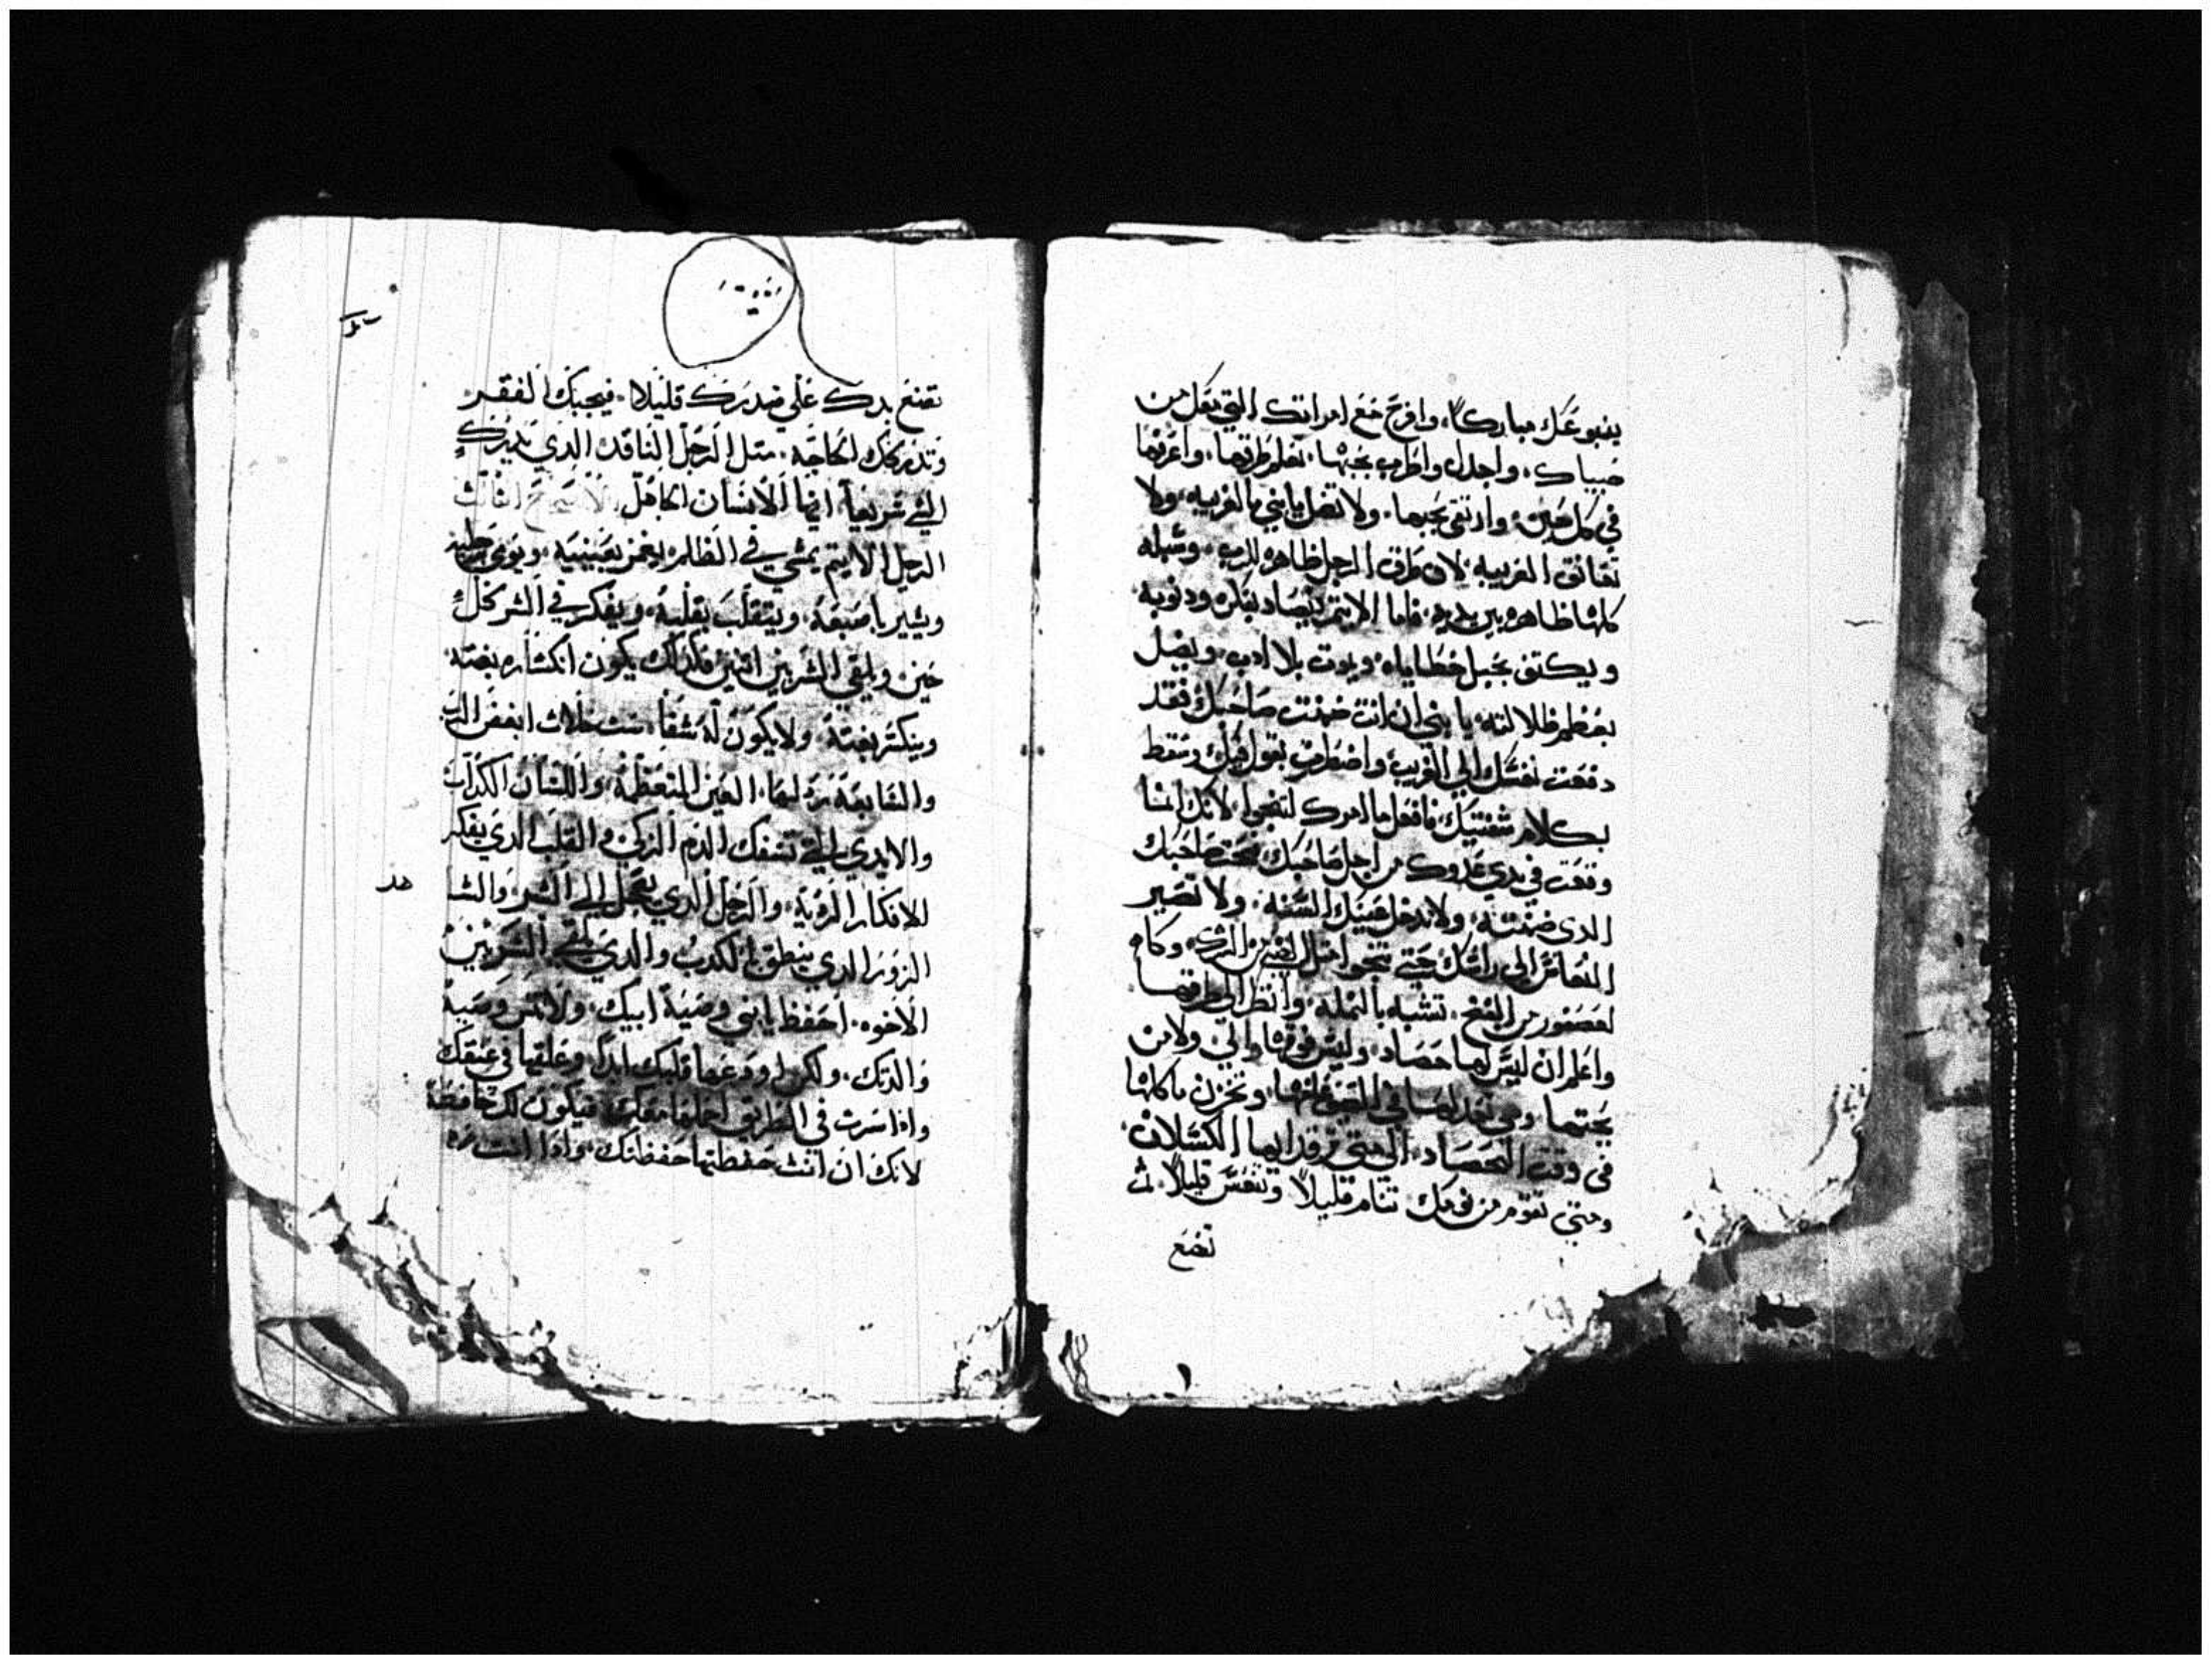 ينبوعك مباركا، وافرح مع امراتك التي تقل من
صبياك، واجدل واطرب بمحبتها، تعلم طرقها، واعزيها
في كل حين، وارتقي بحبها، ولا تضل يا بني بالغريبه، ولا
تعانق الغريبه لان طرق الرجل ظاهره للرب، وسبله
كلها ظاهره بين يديه، فاما الاثيم يتصاد بفكره ودنوبه
ويكتف بحبل خطاياه، ويموت بلا ادب، ويضل
بعظم ظلالته، يا بني ان انت ضمنت صاحبك فقد
دفعت نفسك الي الغريب، واضطربت بقول فمك، وسقط
بكلام شفتيك، فافعل ما امرك لتنجوا، لانك انما
وقعت في يدي عدوك من اجل صاحبك
الدي ضمنته، ولا تدخل عينيك السنه، ولا تصير
النعاس الي راسك حتي تنجوا مثل الظبي من الشرك، وكا
لعصفور من الفخ، تشبه بالنمله، وانظر الي طرقها
واعلم ان ليس لها حصاد، وليس فوقها والي ولا من
يحثها، وهي تعد لها في الصيف قوتها، وتخزن ماكلها
في وقت الحصاد، الي متي ترقد ايها الكسلان،
ومتي تقوم من نومك، تنام قليلا وتنعس قليلا، ثم
تضع
تضع يدك علي صدرك قليلا، فيجيك الفقر
وتدركك الحاجه، مثل الرجل الناقد الدي يدرك
الشي سريعا، ايها الانسان الجاهل
الرجل الاثيم يمشي في الظلام، يغمز بعينيه، ويومي
ويشير باصبعه، ويتقلب بقلبه، ويفكر في الشر كل
حين ويلقي الشر بين اتنين فكدلك يكون انكساره بغته
وينكسر بغته، ولا يكون له شفا، ست خلات ابغض الرب
والسابعه ردلها، العين المتعظمة، واللسان الكداب
والايدي التي تسفك الدم الزكي، والقلب الدي يفكر
الافكار الرديه، والرجل الدي يعجل الي الشر، والشا
الزور الدي ينطق بالكدب والدي يلقي الشر بين
الاخوه، احفظ يا بني وصية ابيك، ولا تنس وصية
والدتك، ولكن اودعها قلبك ابدا، وعلقها في عنقك
وادا سرت في الطريق اجعلها معك، فيكون لك حافظة
لانك ان انت حفظتها حفظتك، وادا انت
هد